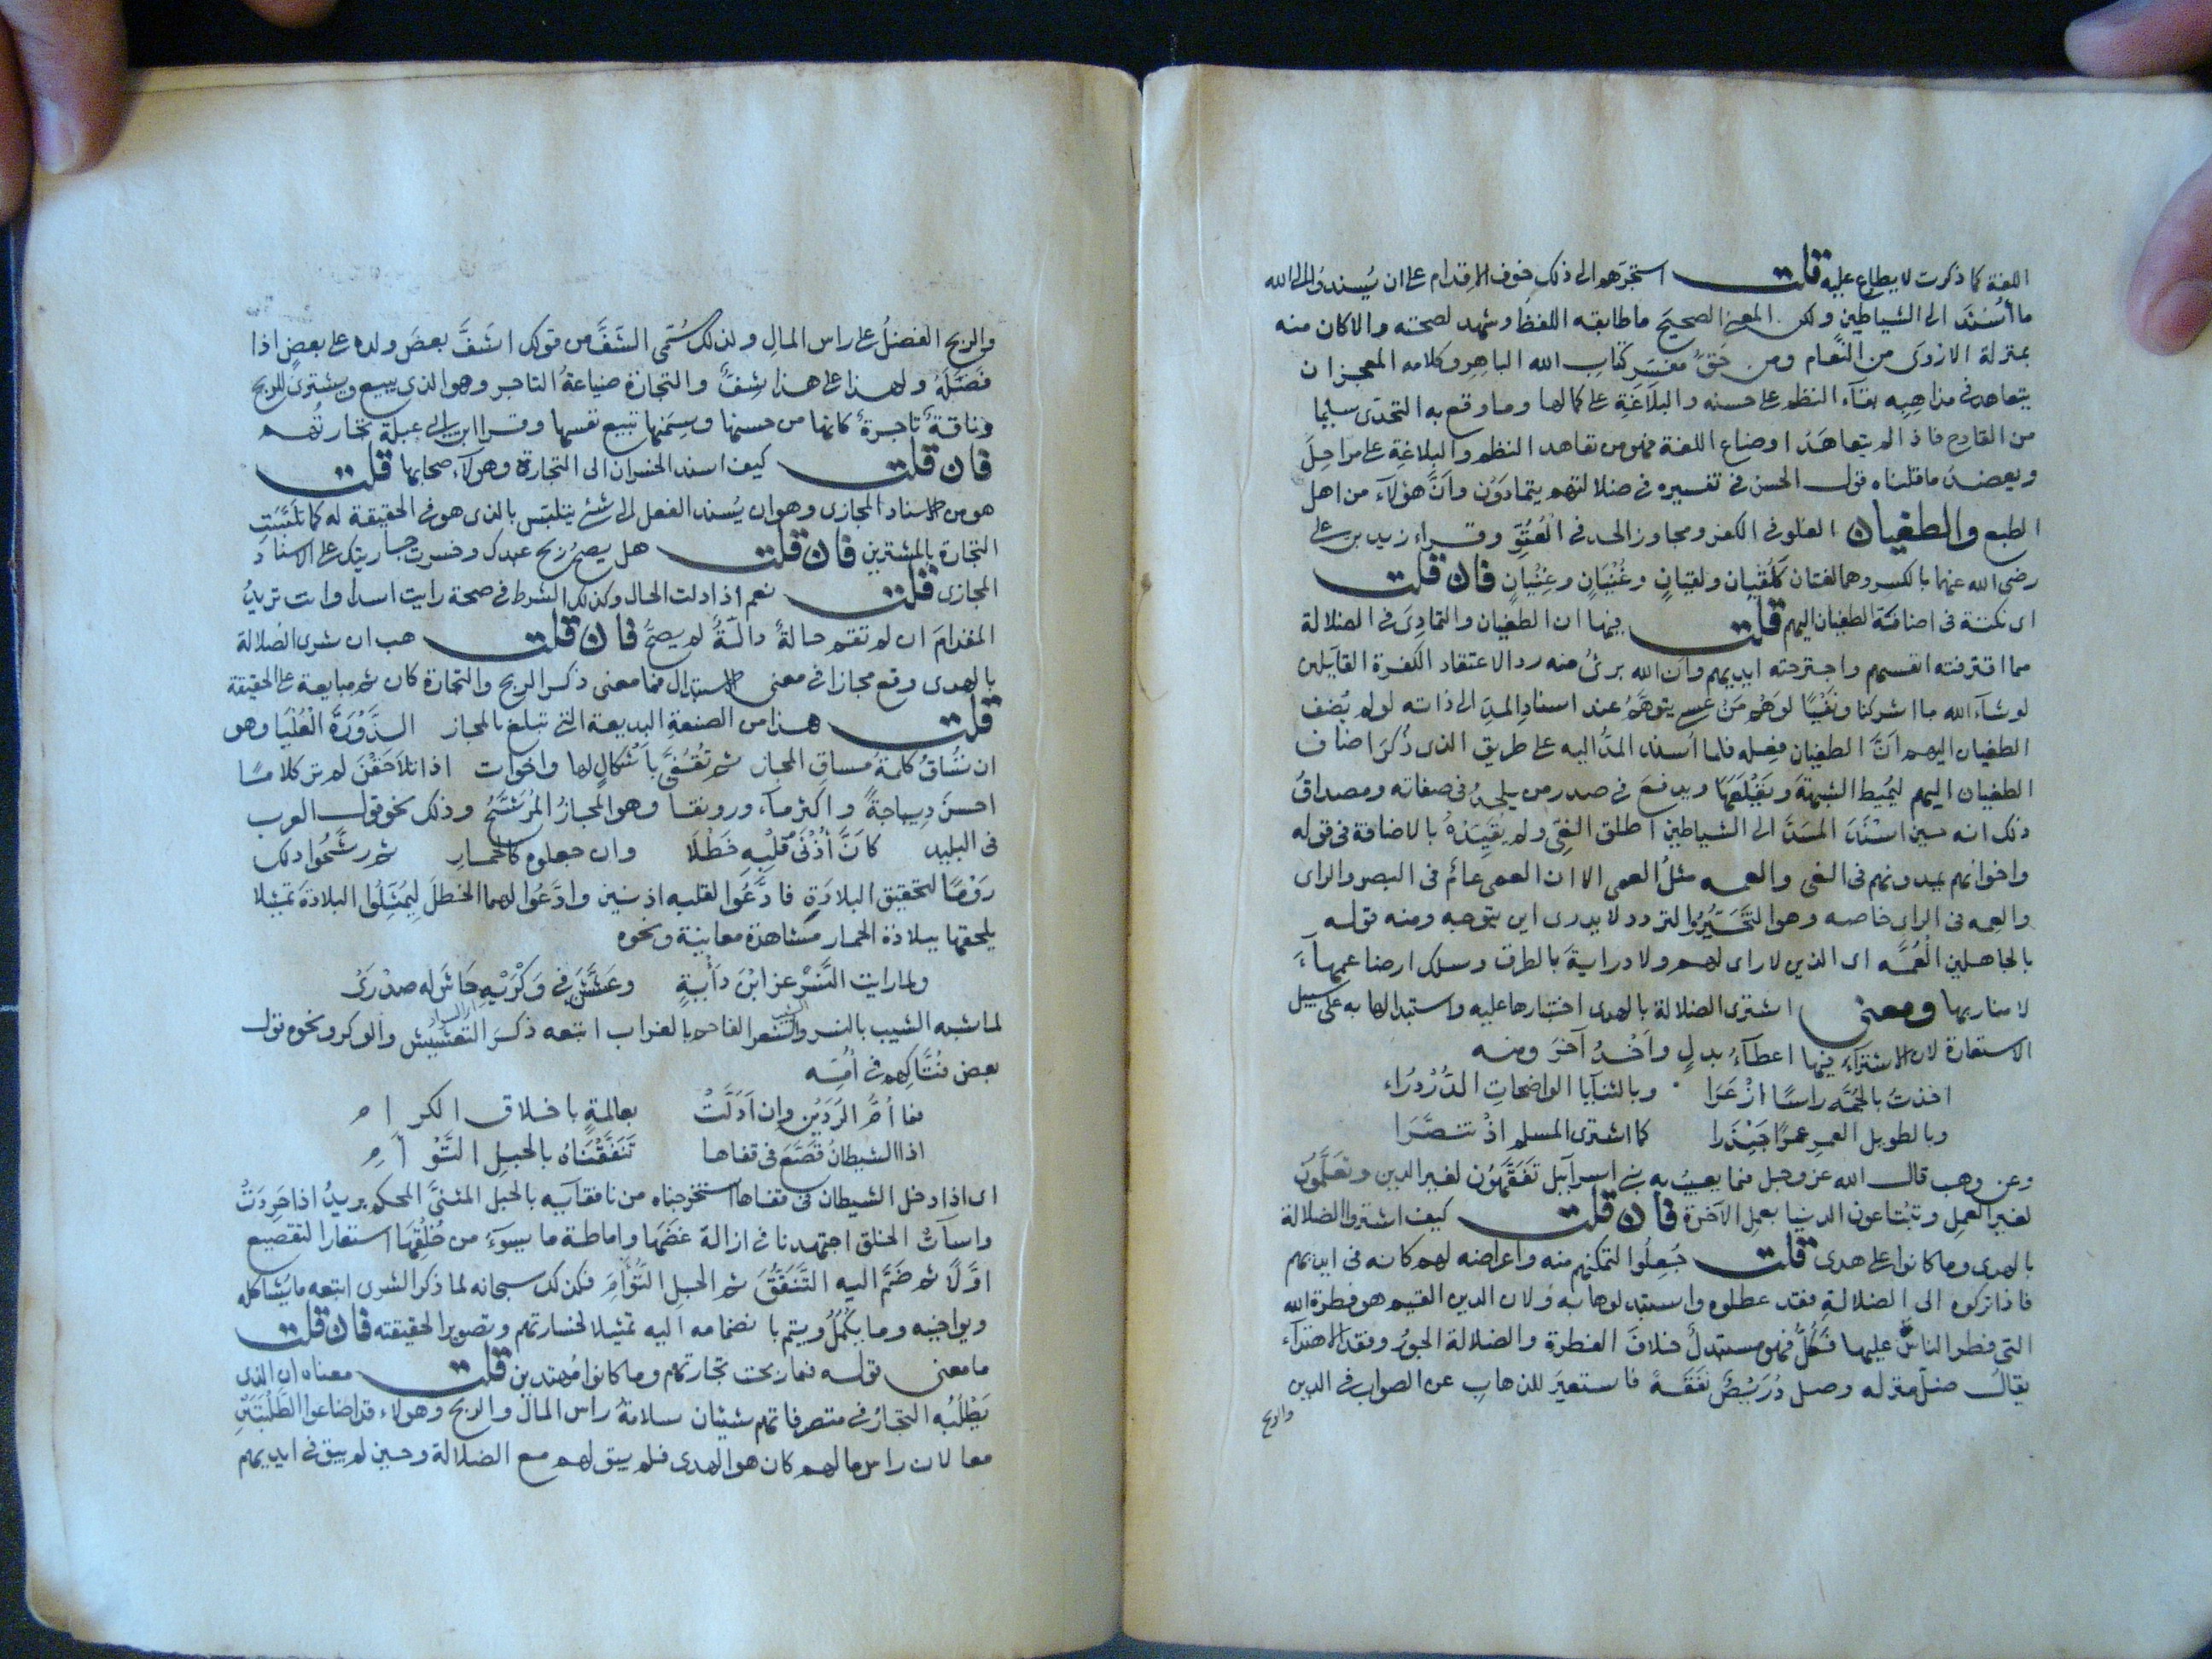 اللغة كما ذكرت لا يطاع عليه قلت استجرهم الى ذلك خوف الاقدام على ان يسندوا الى الله
ما أُسْنِدَ الى الشياطين ولكن المعنى الصحيح ما طابقه اللفظ وشهد لصحته والا كان منه
بمنزلة الاروى من النعام ومن حق مفسر كتاب الله الباهر وكلامه المعجز ان
يتعاهد فى مذاهبه بقآء النظم على حسنه والبلاغة على كمالها وما وقع به التحدى سليما
من القادح فاذا لم يتعاهد اوضاع اللغة فهو من تعاهد النظم والبلاغة على مراحل
ويعضد ما قلناه قول الحسن فى تفسيره فى ضلالتهم يتمادون وان هؤلاء من اهل
الطبع والطغيان الغلو فى الكفر ومجاوز الحد فى العتو وقراء زيد بن على
رضى الله عنهما بالكسر وهما لغتان كلُقيان ولقيان وغُنيان وغِنيان فان قلت
اى نكتة فى اضافة الطغيان اليهم قلت فيها ان الطغيان والتمادى فى الضلالة
مما اقترفته انفسهم واجترحته ايديهم وان الله برئ منه ردا لاعتقاد الكفرة القآيلين
لو شآء الله ما اشركنا ونفيًا لوهم من عسى يتوهم عند اسناد المد الى ذاته لو لم يضف
الطغيان اليهم ان الطغيان فعله فلما اسند المد اليه على طريق الذى ذكر اضاف
الطغيان اليهم ليميط الشبهة ويقلعها ويدفع فى صدر من يلحد فى صفاته ومصداق
ذلك انه حين اسند المد الى الشياطين اطلق الغى ولم يقيده بالاضافة فى قوله
واخوانهم يمدونهم فى الغى والعمه مثل العمى الا ان العمى عام فى البصر والراى
والعمه فى الراى خاصه وهو التحير والتردد لا يدرى اين يتوجه ومنه قوله
بالجاهلين العُمَّه اى الذين لا راى لهم ولا دراية بالطرق وسلك ارضا عمهآء
لا منار بها ومعنى اشترى الضلالة بالهدى اختيارها عليه واستبدالها به على سبيل
الاستعارة لان الاشترآء فيها اعطآء بدل واخذ آخر ومنه
اخذت بالجُمَّه راسًا ازعرا وبالثنايا الواضحات الدردراء
وبالطويل العمر عمرًا جيذرا كما اشترى المسلم اذ تنصرا
وعن وهب قال الله عز وجل فيما يعيب به بنى اسرآييل تفقهون لغير الدين وتعلمون
لغير العمل وتبتاعون الدنيا بعمل الآخرة فان قلت كيف اشتروا الضلالة
بالهدى وما كانوا على هدى قلت جُعِلُوا لتمكنهم منه واعراضه لهم كانه فى ايديهم
فاذا تركوه الى الضلالة فقد عطلوه واستبدلوها به ولان الدين القيم هو فطرة الله
التى فطر الناس عليها فكل فهو مستبدل خلاف الفطرة والضلالة الجور وفقد الاهتدآء
يقال ضل منزله وضل دُرَيْصٌ نفقه فاستعير للذهاب عن الصواب فى الدين
والربح
والربح الفضل على راس المال ولذلك سُمى الشَّفَّ من قولك اشَفَّ بعض ولده على بعض اذا
فضَّله ولهذا على هذا شِفٌّ والتجارة صناعة التاجر وهو الذى يبيع ويشترى للربح
وناقةٌ تاجرةٌ كانها من حسنها وسِمَنِها تبيع نفسها وقرا ابن ابى عبلة تجاراتهم
فان قلت كيف اسند الخسران الى التجارة وهو لاصحابها قلت
هو من الاسناد المجازى وهو ان يُسند الفعل الى شئ يتلبس بالذى هو فى الحقيقة له كما تلبست
التجارة بالمشترين فان قلت هل يصح ربح عبدك وخسرت جاريتك على الاسناد
المجازى قلت نعم اذا دلت الحال وكذلك الشرط فى صحة رايت اسدا وانت تريد
المقدام ان لم تقم حالة دالة لم يصح فان قلت هب ان شرى الضلالة
بالهدى وقع مجازا فى معنى الاستبدال فما معنى ذكر الربح والتجارة كان ثم مبايعة على الحقيقة
قلت هذا من الصنعة البديعة التى تبلغ بالمجاز الذروة العليا وهو
ان تُساق كلمة مساق المجاز ثم تقفى باشكال لها واخوات اذا تلاحقن لم تر كلامًا
احسن ديباجةً واكثر مآء ورونقا وهو المجاز المرشح وذلك نحو قول العرب
فى البليد كانَّ أُذْنَىْ قلبه خطلا وان جعلوه كالحمار ثم رشحوا ذلك
رَوْمًا لتحقيق البلادة فادَّعُوا لقلبه اذنين وادَّعُوا لهما الخطل ليُمَثِّلُوا البلادة تمثيلا
يلحقها ببلادة الحمار مشاهدة معاينة ونحوه
ولما رايت النسر عز ابن دأيةٍ وعشش فى وكريه جاش له صدرى
لما شبه الشيب بالنسر والشعر الفاحم بالغراب اتبعه ذكر التعشيش والوكر ونحوه قول
بعض فُتَّاكِهم فى أُمِّه
فما أمُّ الرُّدَيْنِ وان ادلت بعالمةٍ باخلاق الكرام
اذا الشيطان قصَّع فى قفاها تنفقناه بالحبل التؤام
اى اذا دخل الشيطان فى قفاها استخرجناه من نافقآيه بالحبل المثنى المحكم يريد اذا حردت
واسآت الخلق اجتهدنا فى ازالة غضبها واماطة ما يسوء من خلقها استعار التقصيع
اوَّلًا ثم ضم اليه التنفق ثم الحبل التؤام فكذلك سبحانه لما ذكر الشرى اتبعه ما يشاكله
ويواخيه وما يكمل ويتم بانضمامه اليه تمثيلا لخسارتهم وتصويرا لحقيقته فان قلت
ما معنى قوله فما ربحت تجارتهم وما كانوا مهتدين قلت معناه ان الذى
يطلبه التجار فى متصرفاتهم شيئان سلامة راس المال والربح وهولاء قد اضاعوا الطَّلِبتين
معا لان راس مالهم كان هو الهدى فلم يبق لهم مع الضلالة وحين لم يبق فى ايديهم